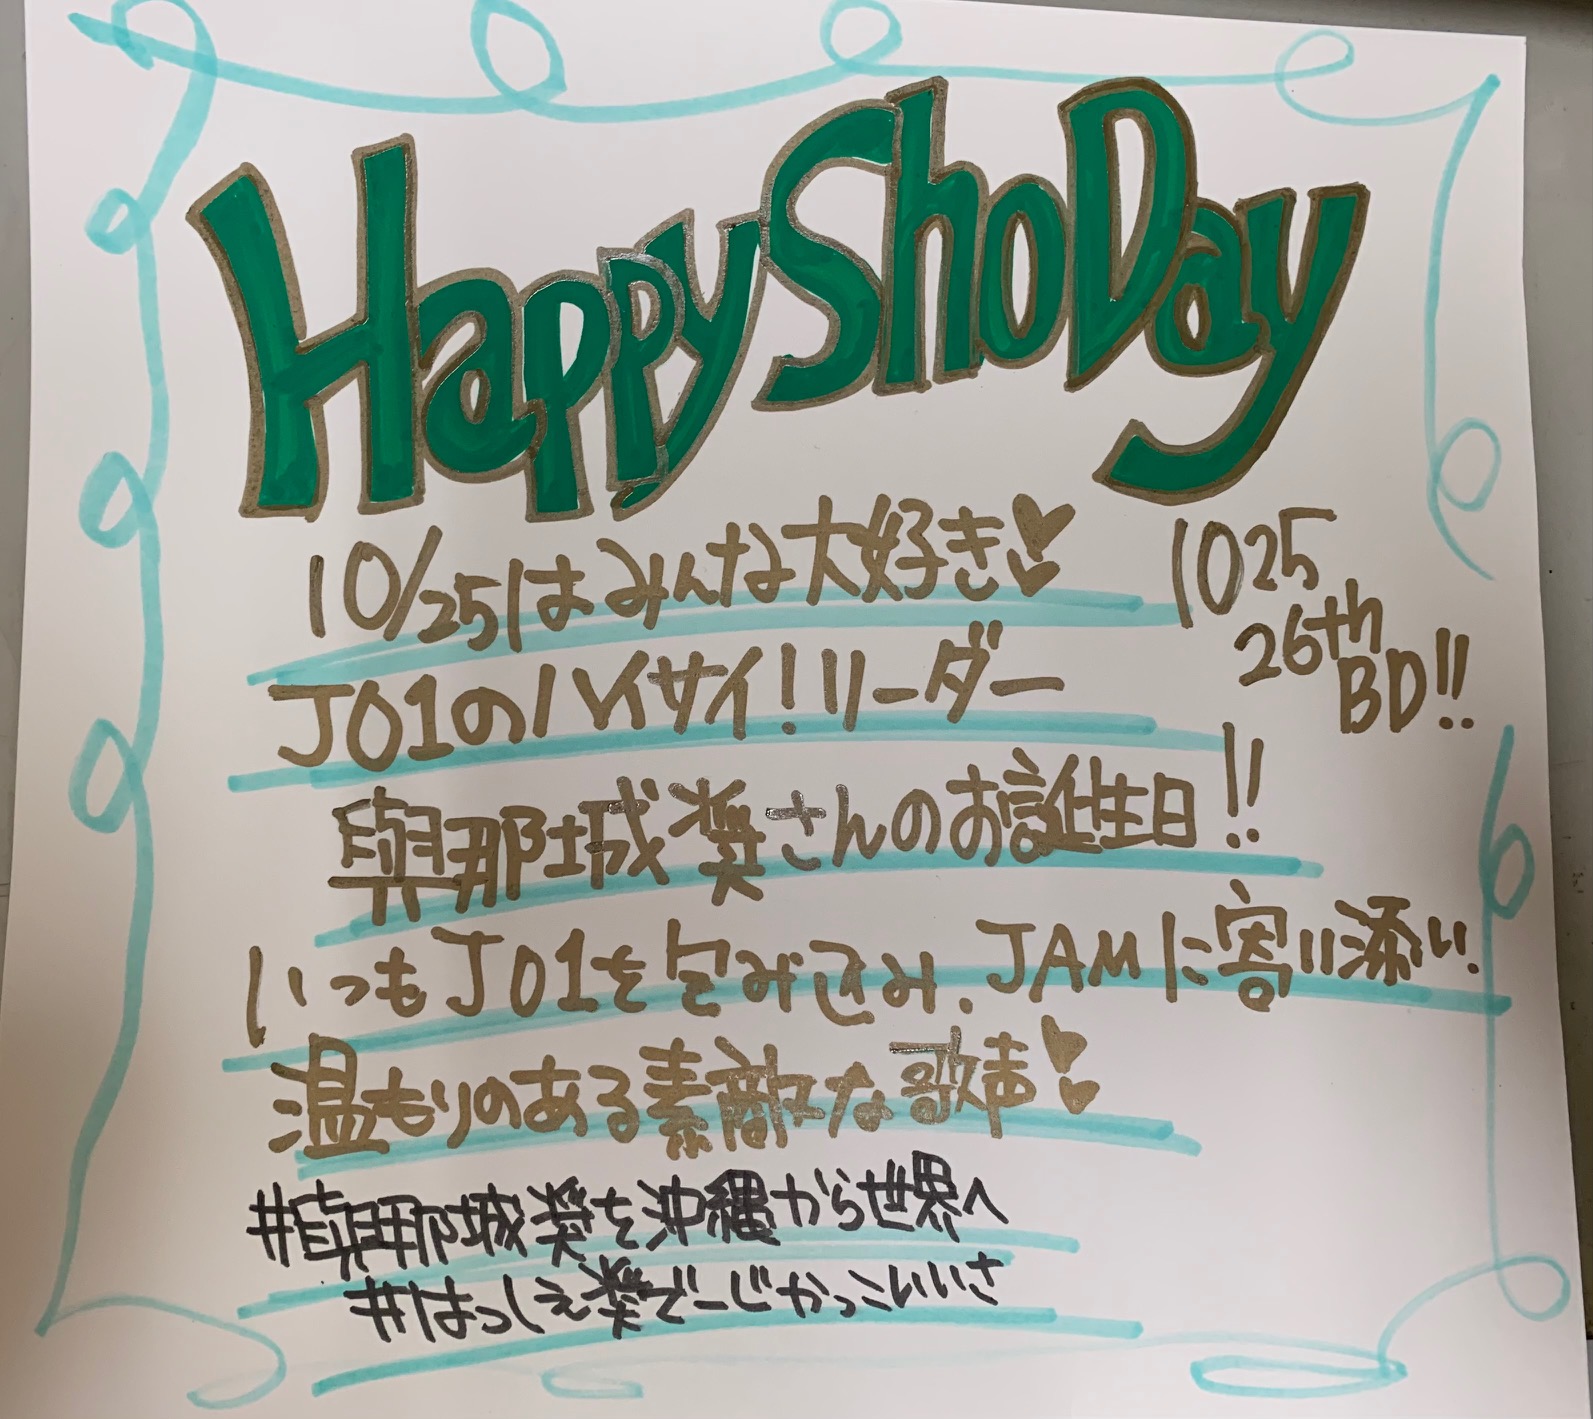 Happy Sho Day
10/25はみんな大好き♥
JO1のハイサイ!リーダー
與那城奨さんのお誕生日!!
1025
26th
BD!!
いつもJO1を包み込み、JAMに寄り添い
温もりのある素敵な歌声♥
#與那城奨を沖縄から世界へ
#はっしぇ奨でーじかっこいいさ